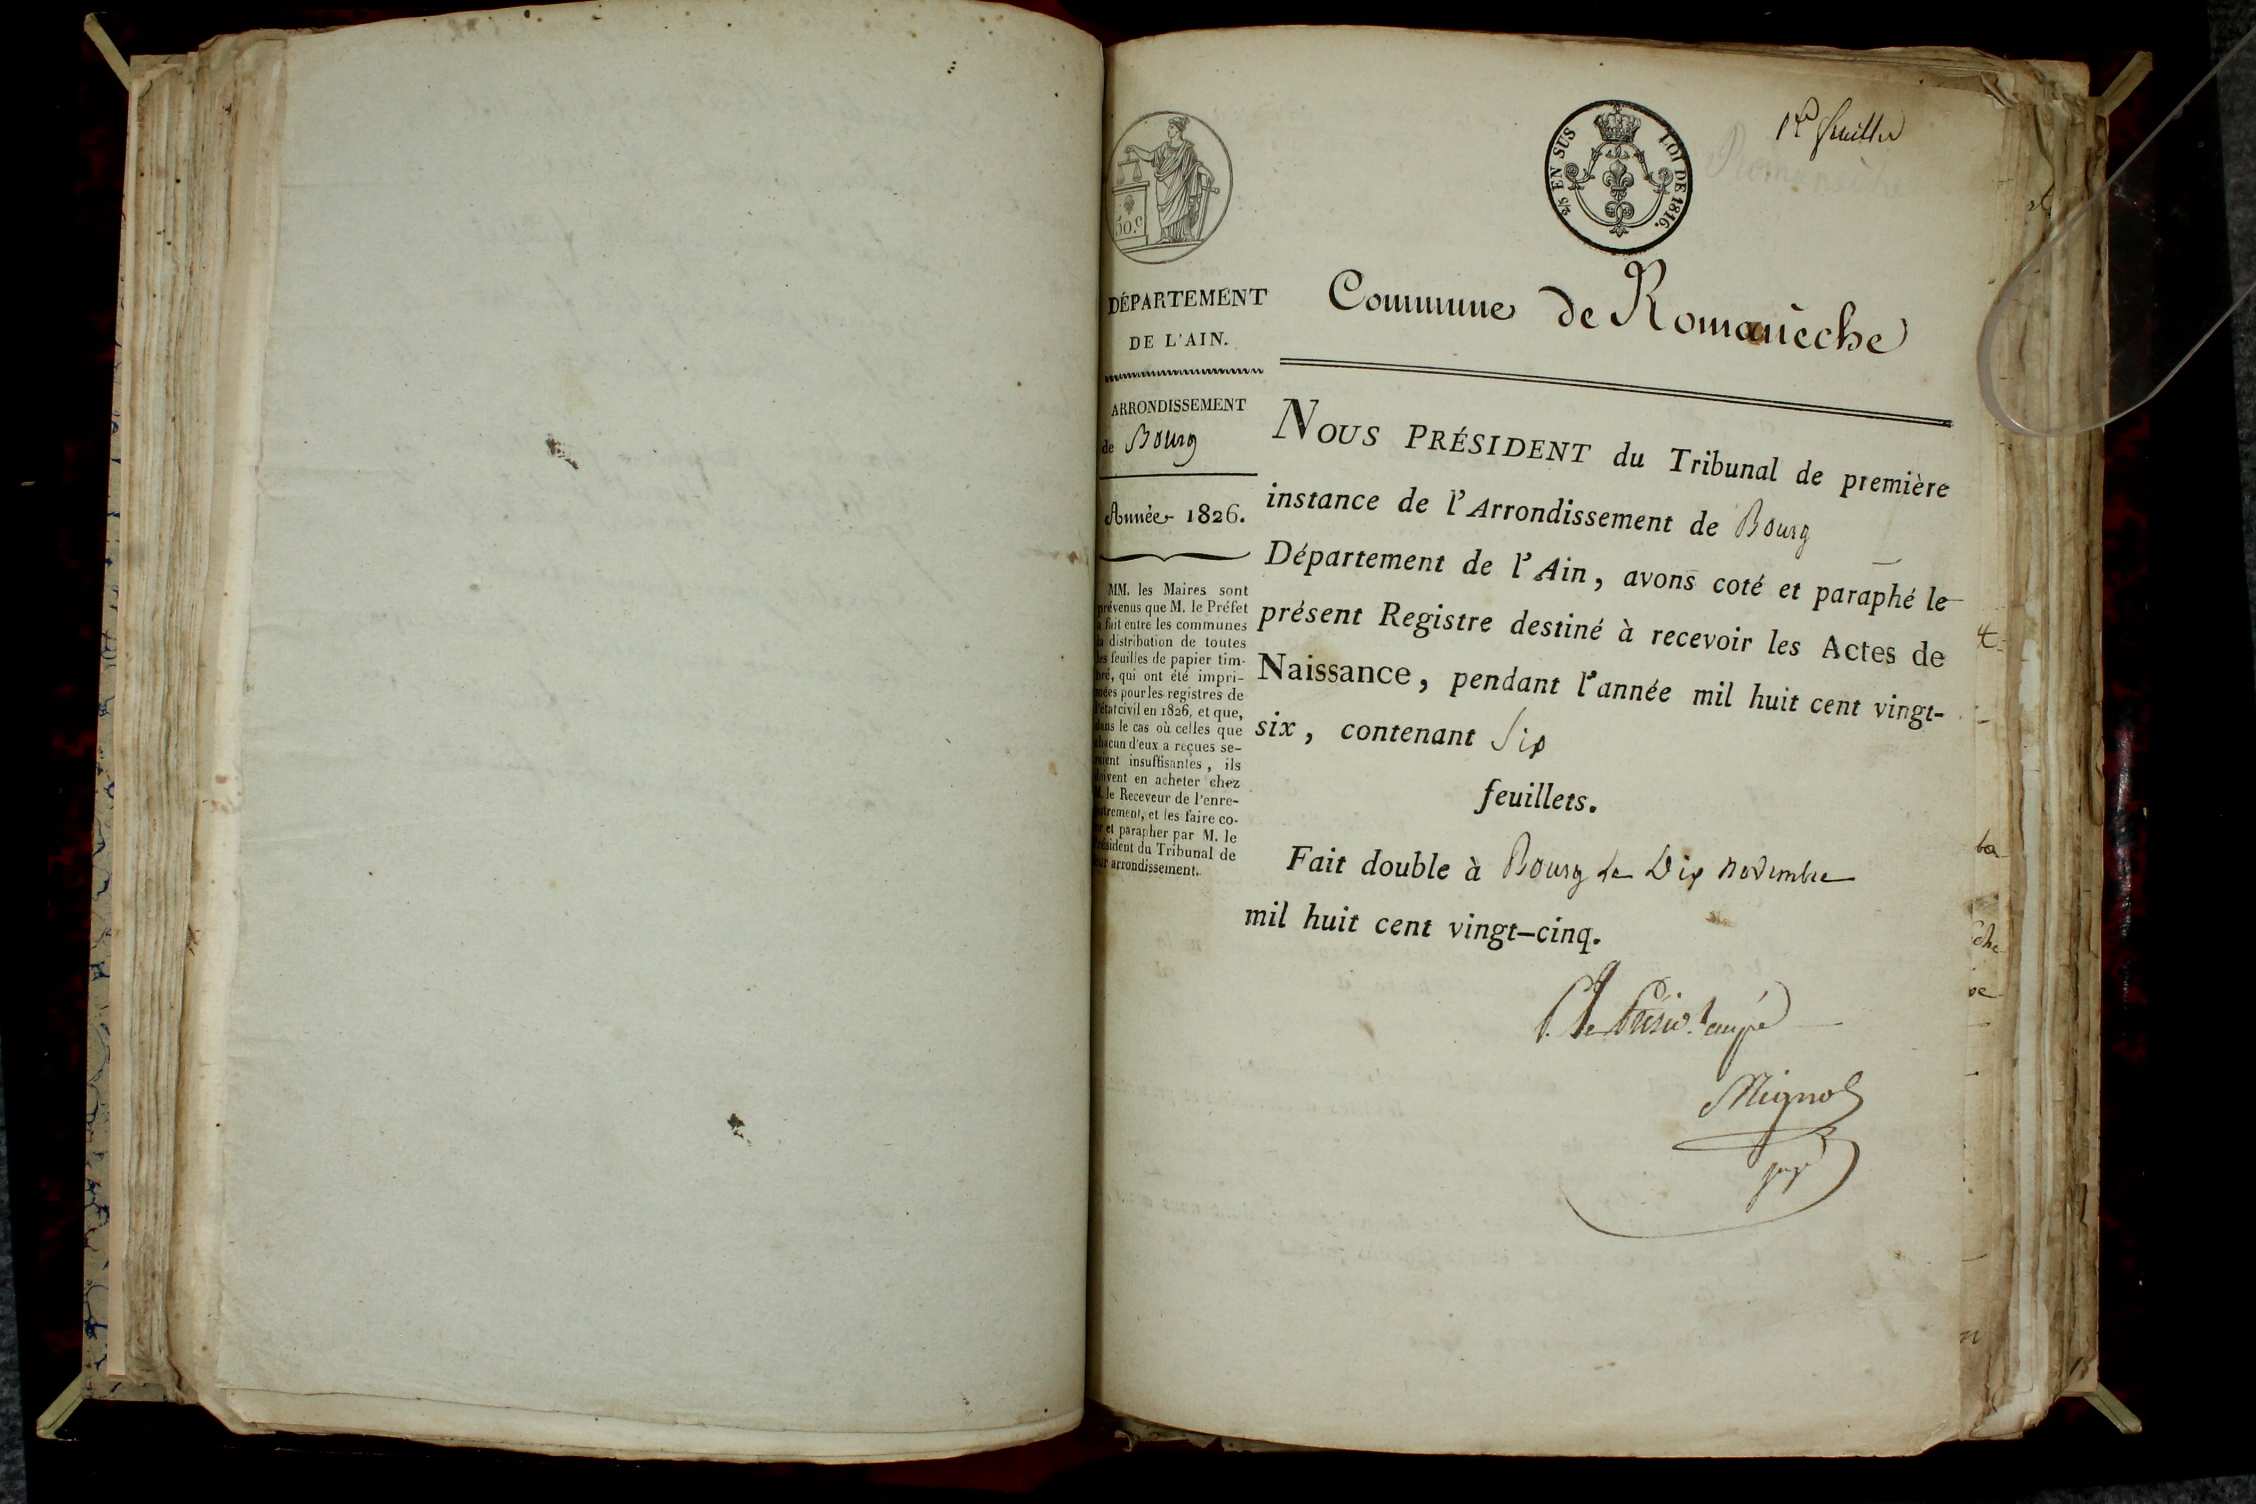 1er feuillet
Romanèche
50.c
2/5 EN SUS
LOI DE 1816.
DÉPARTEMENT
DE L'AIN.
ARRONDISSEMENT
de Bourg
Année 1826.
MM. les Maires sont
prévenus que M. le Préfet
a fait entre les communes
la distribution de toutes
les feuilles de papier tim-
bré, qui ont été impri-
mées pour les registres de
l'état civil en 1826, et que,
dans le cas où celles que
chacun d'eux a reçues se-
raient insuffisantes, ils
doivent en acheter chez
M. le Receveur de l'enre-
gistrement, et les faire co-
ter et parapher par M. le
Président du Tribunal de
leur arrondissement.
Commune de Romanèche
NOUS PRÉSIDENT du Tribunal de première
instance de l'Arrondissement de Bourg
Département de l'Ain, avons coté et paraphé le
présent Registre destiné à recevoir les Actes de
Naissance, pendant l'année mil huit cent vingt-
six, contenant Six
feuillets.
Fait double à Bourg le Dix novembre
mil huit cent vingt-cinq.
P. le Présid.t empé
Mignot
juge